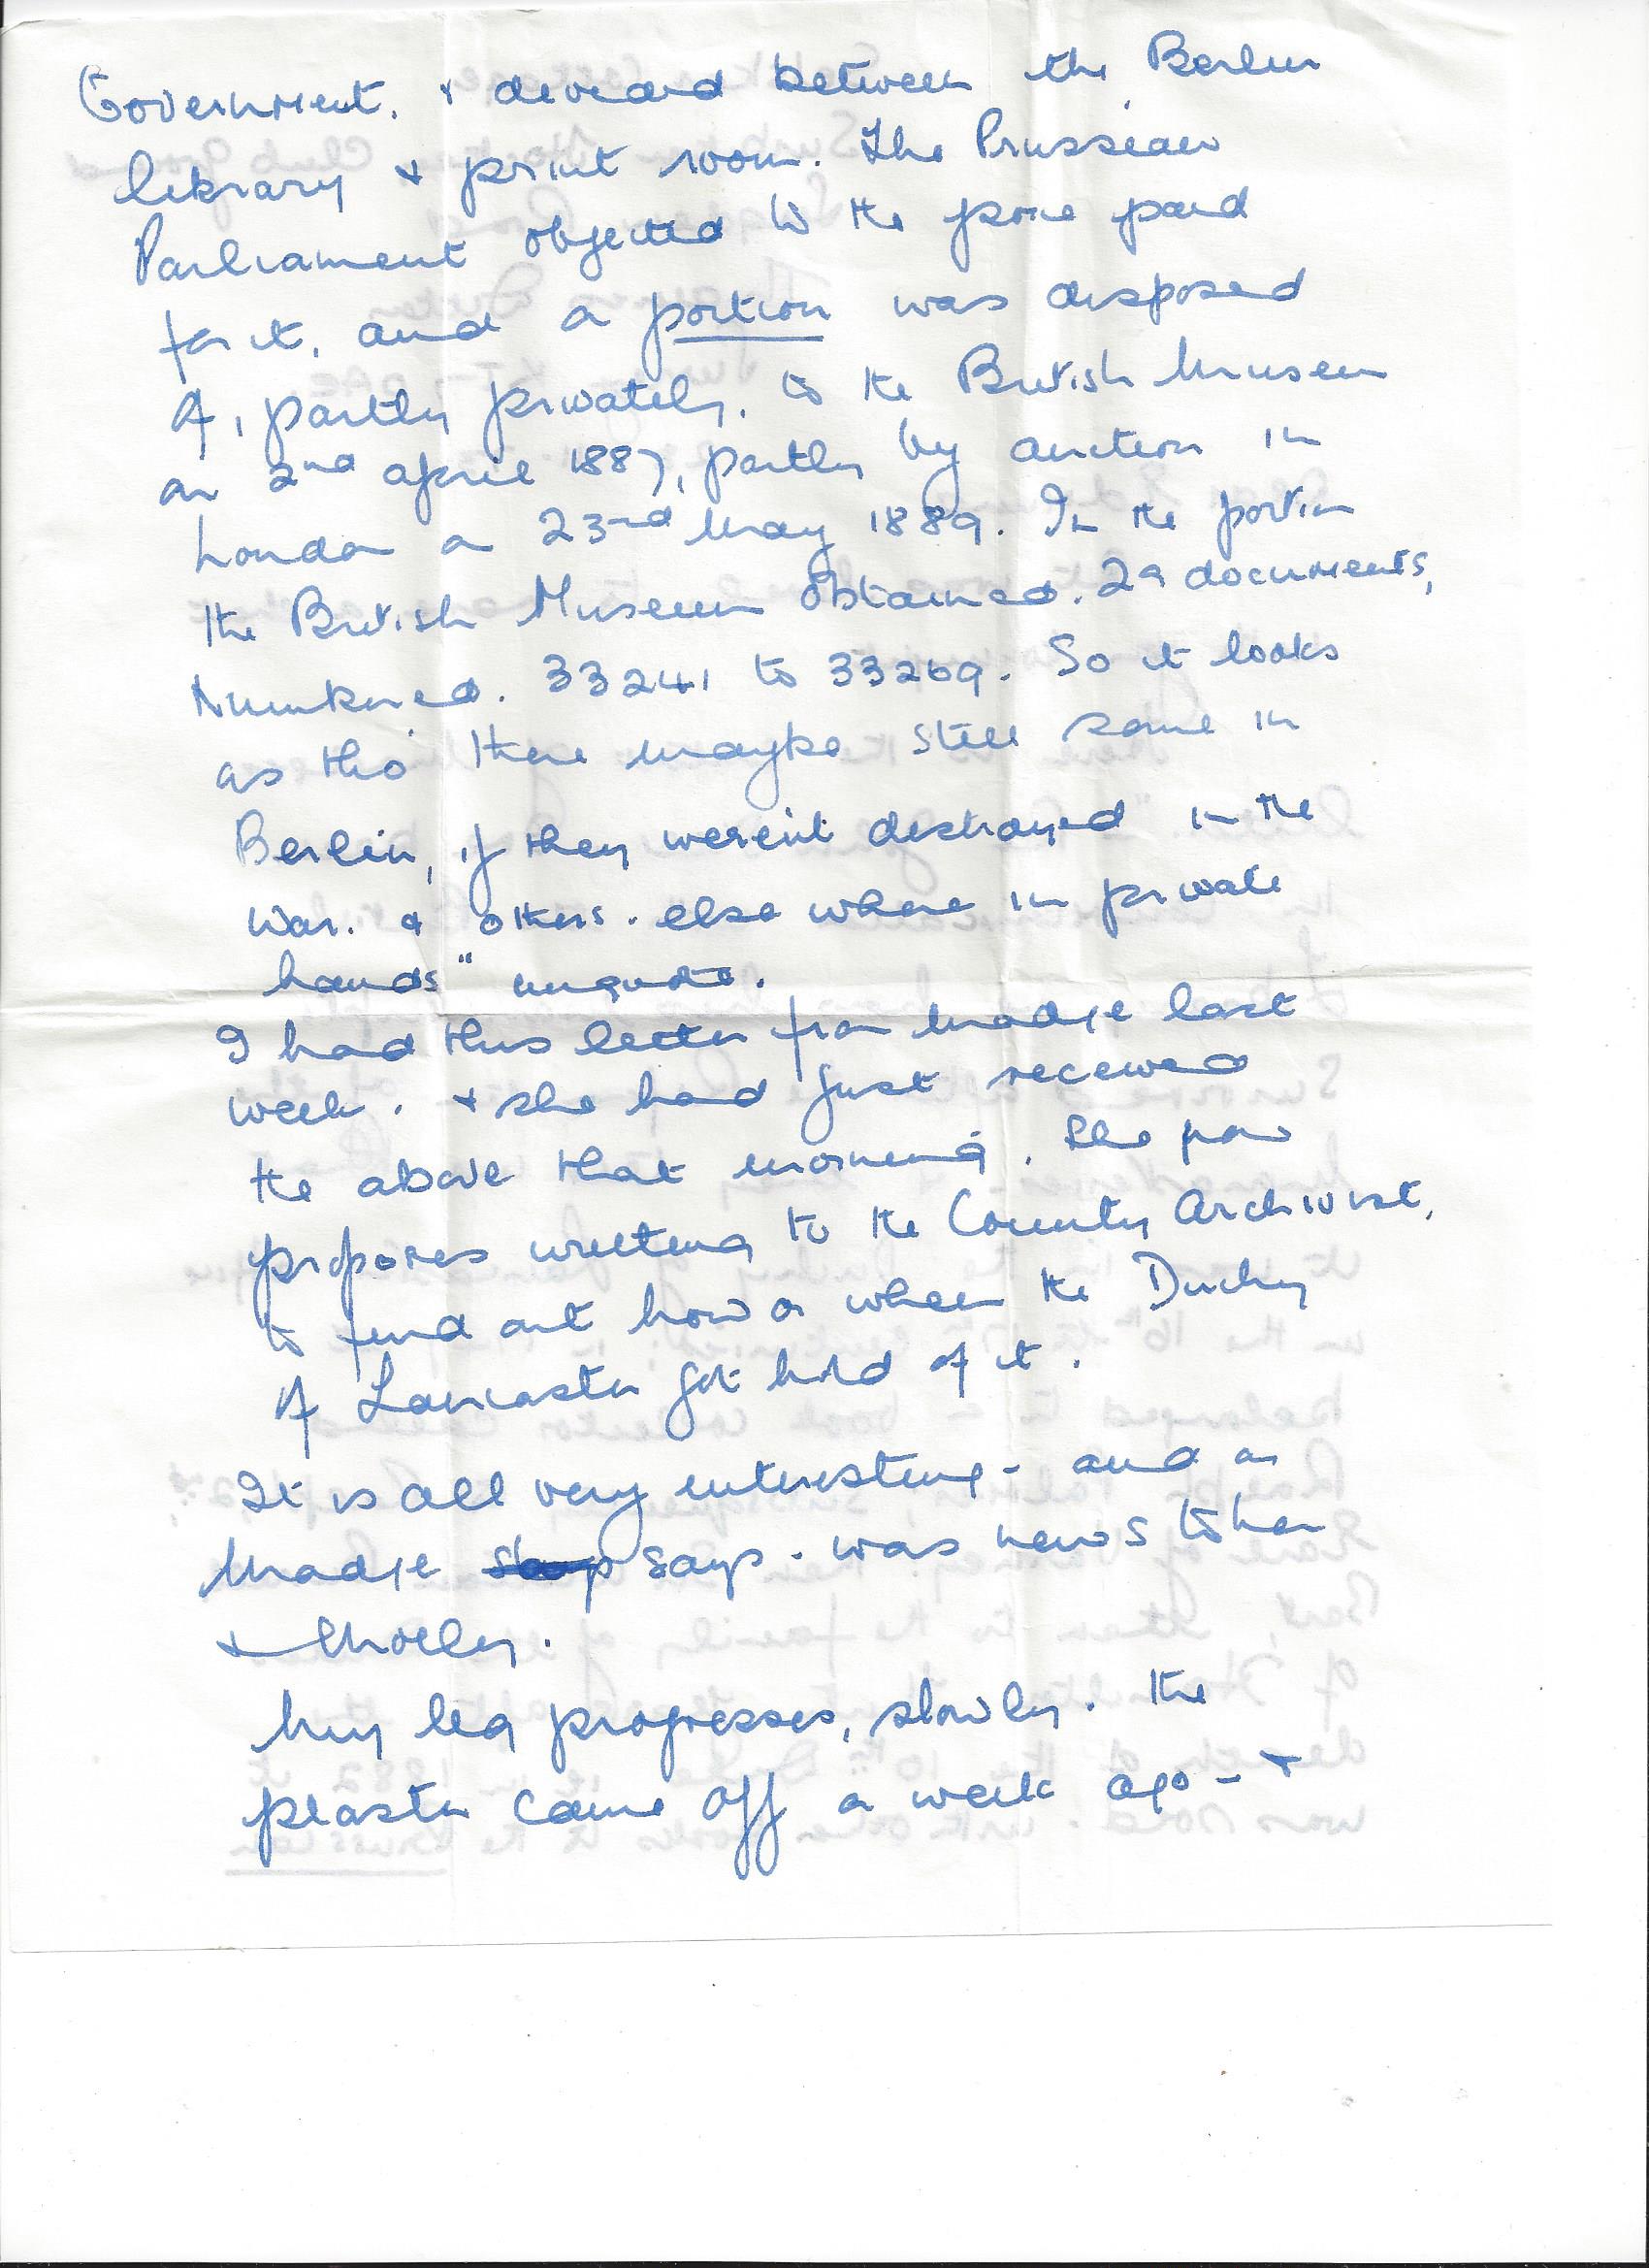 Government. & devided between the Berlin
library & print room. The Prussian
Parliament objected to the price paid
for it, and a portion was disposed
of, partly privately, to the British Museum
on 2nd April 1887, partly by auction in
London on 23rd May 1889. In the portion
the British Museum obtained. 29 documents,
Numbered. 33241 to 33269. So it looks
as tho' there maybe still some in
Berlin, if they weren't destroyed in the
War. & others. else where in private
hands" unquote.
I had this letter from Madge last
week. & she had just received
the above that morning. She now
proposes writting to the County Archivist,
to find out how or when the Duchy
of Lancaster got hold of it.
It is all very interesting - and as
Madge says. was news to her
& Molly.
My leg progresses, slowly. the
plaster came off a week ago - &